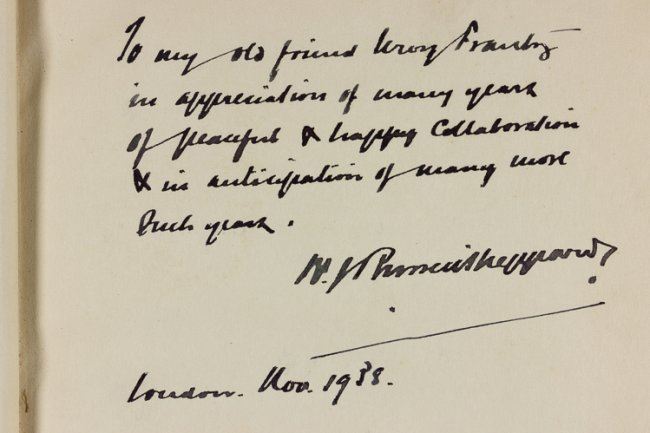 To my old friend Leroy Frantz
in appreciation of many years
of peaceful & happy Collaboration
& in anticipation of many more
Such years.
Sheppard
London. Nov. 1938.